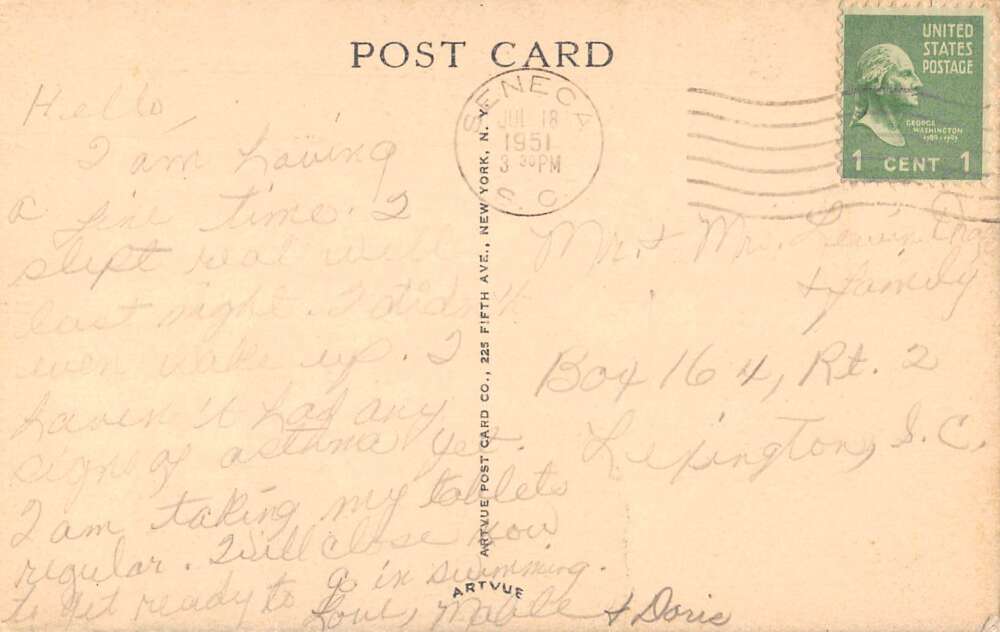 POST CARD
UNITED
STATES
POSTAGE
GEORGE
WASHINGTON
1789-1797
1 CENT 1
SENECA
JUL 18
1951
3 30 PM
S. C.
Hello,
I am having
a fine time. I
slept real well
last night. I didn't
even wake up. I
haven't had any
signs of asthma yet.
I am taking my tablets
regular. Will close now
to get ready to go in swimming.
Love, Mable & Doris
ARTVUE POST CARD CO., 225 FIFTH AVE., NEW YORK, N. Y.
ARTVUE
Mr. & Mrs.
& family
Box 164, Rt. 2
Lexington, S.C.